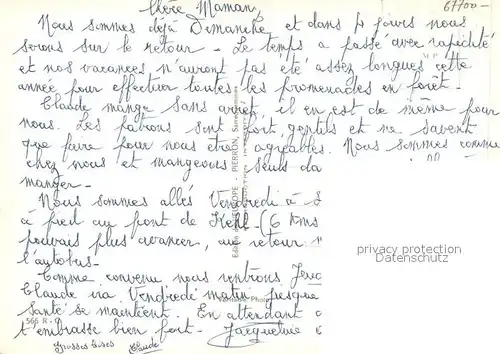 67700 -
Chère Maman,
Nous sommes déjà Dimanche et dans 4 jours nous
serons sur le retour - Le temps a passé avec rapidité
et nos vacances n'auront pas été assez longues cette
année pour effectuer toutes les promenades en forêt -
Claude mange sans arrêt, il en est de même pour
nous. Les patrons sont fort gentils et ne savent
que faire pour nous être agréables. Nous sommes comme
chez nous et mangeons seuls da
manger -
Nous sommes allés Vendredi à
à pied au pont de Kehl (6 kms
pouvais plus avancer, au retour
l'autobus -
Comme convenu nous rentrons Jeu
Claude ira Vendredi matin presque
santé se maintient. En attendant
t'embrasse bien fort - Jacqueline
566 R
Grosses bises Claude
PIERRON
privacy protection
Datenschutz